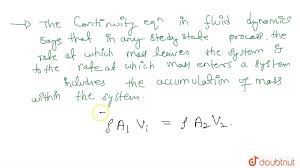 → The Continuity eqn in fluid dynamics
says that in any steady state process. the
rate at which mass leaves the system is
to the rate at which mass enters a system
includes the accumulation of mass
within the system.
ρ A1 Vi = ρ A2 V2.
doubtnut